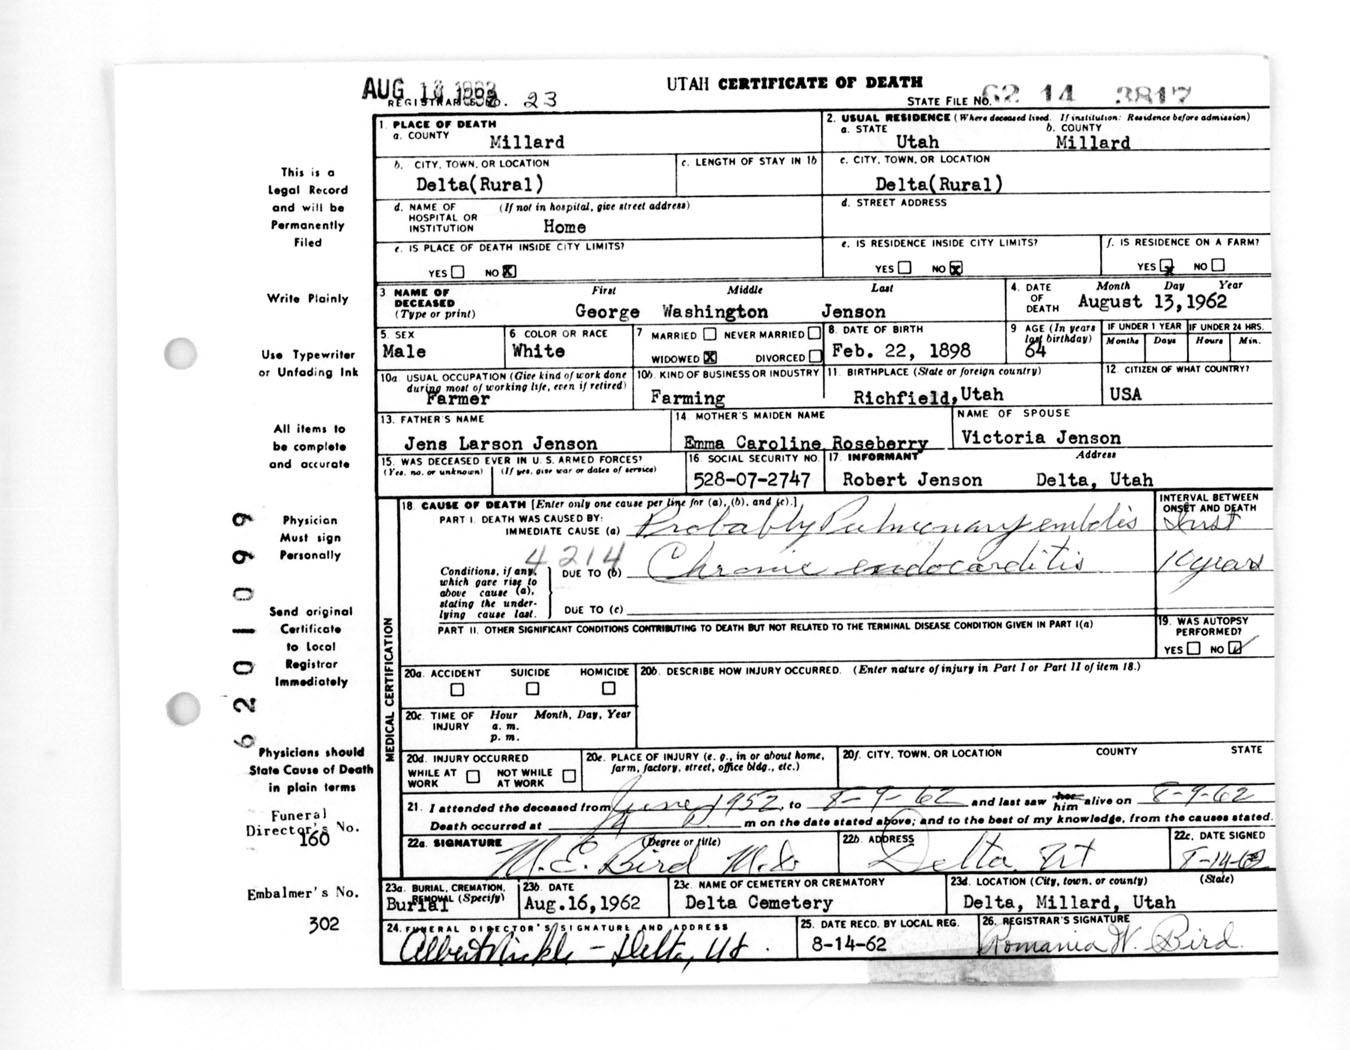 UTAH CERTIFICATE OF DEATH
AUG
REGISTRAR'S NO. 23
STATE FILE NO. 62 14 3817
1. PLACE OF DEATH
a. COUNTY
Millard
2. USUAL RESIDENCE (Where deceased lived. If institution: Residence before admission)
a. STATE b. COUNTY
Utah Millard
b. CITY, TOWN, OR LOCATION
Delta(Rural)
c. LENGTH OF STAY IN 1b
c. CITY, TOWN, OR LOCATION
Delta(Rural)
d. NAME OF HOSPITAL OR INSTITUTION (If not in hospital, give street address)
Home
d. STREET ADDRESS
e. IS PLACE OF DEATH INSIDE CITY LIMITS?
YES NO X
e. IS RESIDENCE INSIDE CITY LIMITS?
YES NO X
f. IS RESIDENCE ON A FARM?
YES X NO
3 NAME OF DECEASED (Type or print)
First Middle Last
George Washington Jenson
4. DATE OF DEATH Month Day Year
August 13, 1962
5. SEX
Male
6 COLOR OR RACE
White
7 MARRIED NEVER MARRIED
WIDOWED X DIVORCED
8. DATE OF BIRTH
Feb. 22, 1898
9 AGE (In years last birthday)
64
IF UNDER 1 YEAR IF UNDER 24 HRS.
Months Days Hours Min.
10a. USUAL OCCUPATION (Give kind of work done during most of working life, even if retired)
Farmer
10b. KIND OF BUSINESS OR INDUSTRY
Farming
11. BIRTHPLACE (State or foreign country)
Richfield, Utah
12 CITIZEN OF WHAT COUNTRY?
USA
13. FATHER'S NAME
Jens Larson Jenson
14 MOTHER'S MAIDEN NAME
Emma Caroline Roseberry
NAME OF SPOUSE
Victoria Jenson
15. WAS DECEASED EVER IN U.S. ARMED FORCES?
(Yes, no, or unknown) (If yes, give war or dates of service)
16 SOCIAL SECURITY NO.
528-07-2747
17. INFORMANT Address
Robert Jenson Delta, Utah
18. CAUSE OF DEATH [Enter only one cause per line for (a), (b), and (c).]
PART I. DEATH WAS CAUSED BY:
IMMEDIATE CAUSE (a) Probably Pulmonary embolis
INTERVAL BETWEEN ONSET AND DEATH
Inst
4214
Conditions, if any, which gave rise to above cause (a), stating the underlying cause last.
DUE TO (b) Chronic endocarditis 10 years
DUE TO (c)
PART II. OTHER SIGNIFICANT CONDITIONS CONTRIBUTING TO DEATH BUT NOT RELATED TO THE TERMINAL DISEASE CONDITION GIVEN IN PART I(a)
19. WAS AUTOPSY PERFORMED?
YES NO ✓
MEDICAL CERTIFICATION
20a. ACCIDENT SUICIDE HOMICIDE
20b. DESCRIBE HOW INJURY OCCURRED. (Enter nature of injury in Part I or Part II of item 18.)
20c. TIME OF INJURY Hour Month, Day, Year
a. m.
p. m.
20d. INJURY OCCURRED
WHILE AT WORK NOT WHILE AT WORK
20e. PLACE OF INJURY (e. g., in or about home, farm, factory, street, office bldg., etc.)
20f. CITY, TOWN, OR LOCATION COUNTY STATE
21. I attended the deceased from June 1952, to 8-9-62 and last saw her him alive on 8-9-62
Death occurred at m on the date stated above; and to the best of my knowledge, from the causes stated.
22a. SIGNATURE (Degree or title)
M. E. Bird M.D.
22b. ADDRESS
Delta Ut
22c. DATE SIGNED
8-14-62
23a. BURIAL, CREMATION, REMOVAL (Specify)
Burial
23b. DATE
Aug.16,1962
23c. NAME OF CEMETERY OR CREMATORY
Delta Cemetery
23d. LOCATION (City, town, or county) (State)
Delta, Millard, Utah
24. FUNERAL DIRECTOR'S SIGNATURE AND ADDRESS
Albert Nickle - Delta, Ut.
25. DATE RECD. BY LOCAL REG.
8-14-62
26. REGISTRAR'S SIGNATURE
Romania W. Bird.
This is a
Legal Record
and will be
Permanently
Filed
Write Plainly
Use Typewriter
or Unfading Ink
All items to
be complete
and accurate
Physician
Must sign
Personally
Send original
Certificate
to Local
Registrar
Immediately
Physicians should
State Cause of Death
in plain terms
Funeral
Director's No.
160
Embalmer's No.
302
6201099